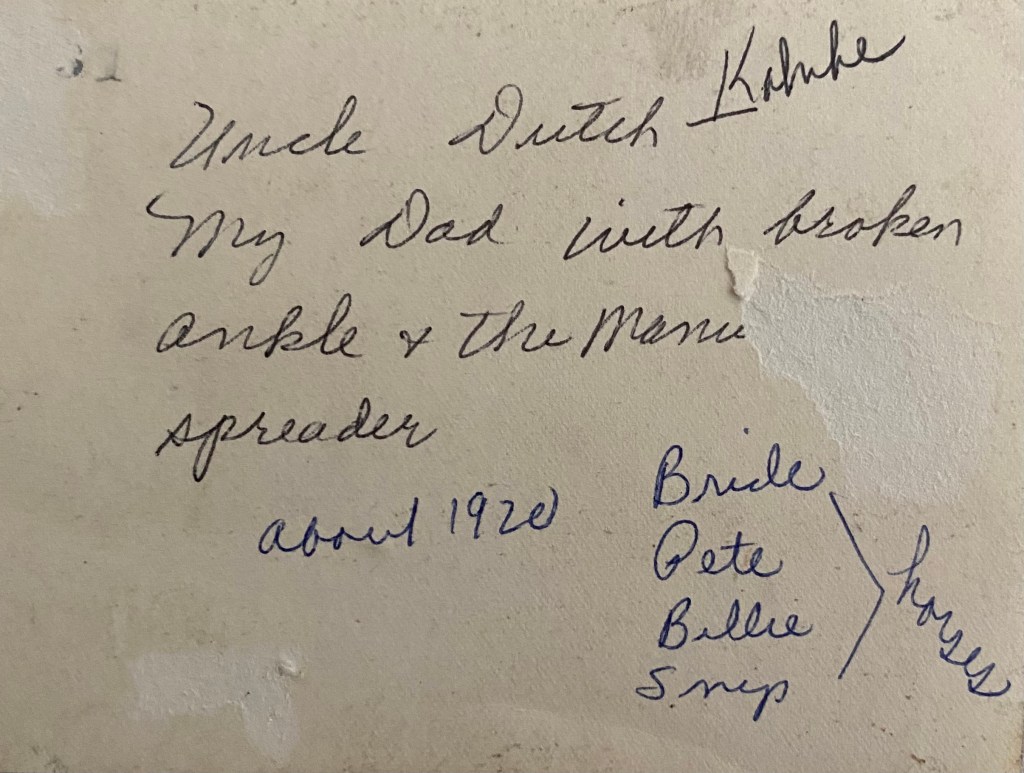 Uncle Dutch Kahnke
My Dad with broken
ankle & the Manu
spreader
about 1920
Bride
Pete
Billie
Snip
horses